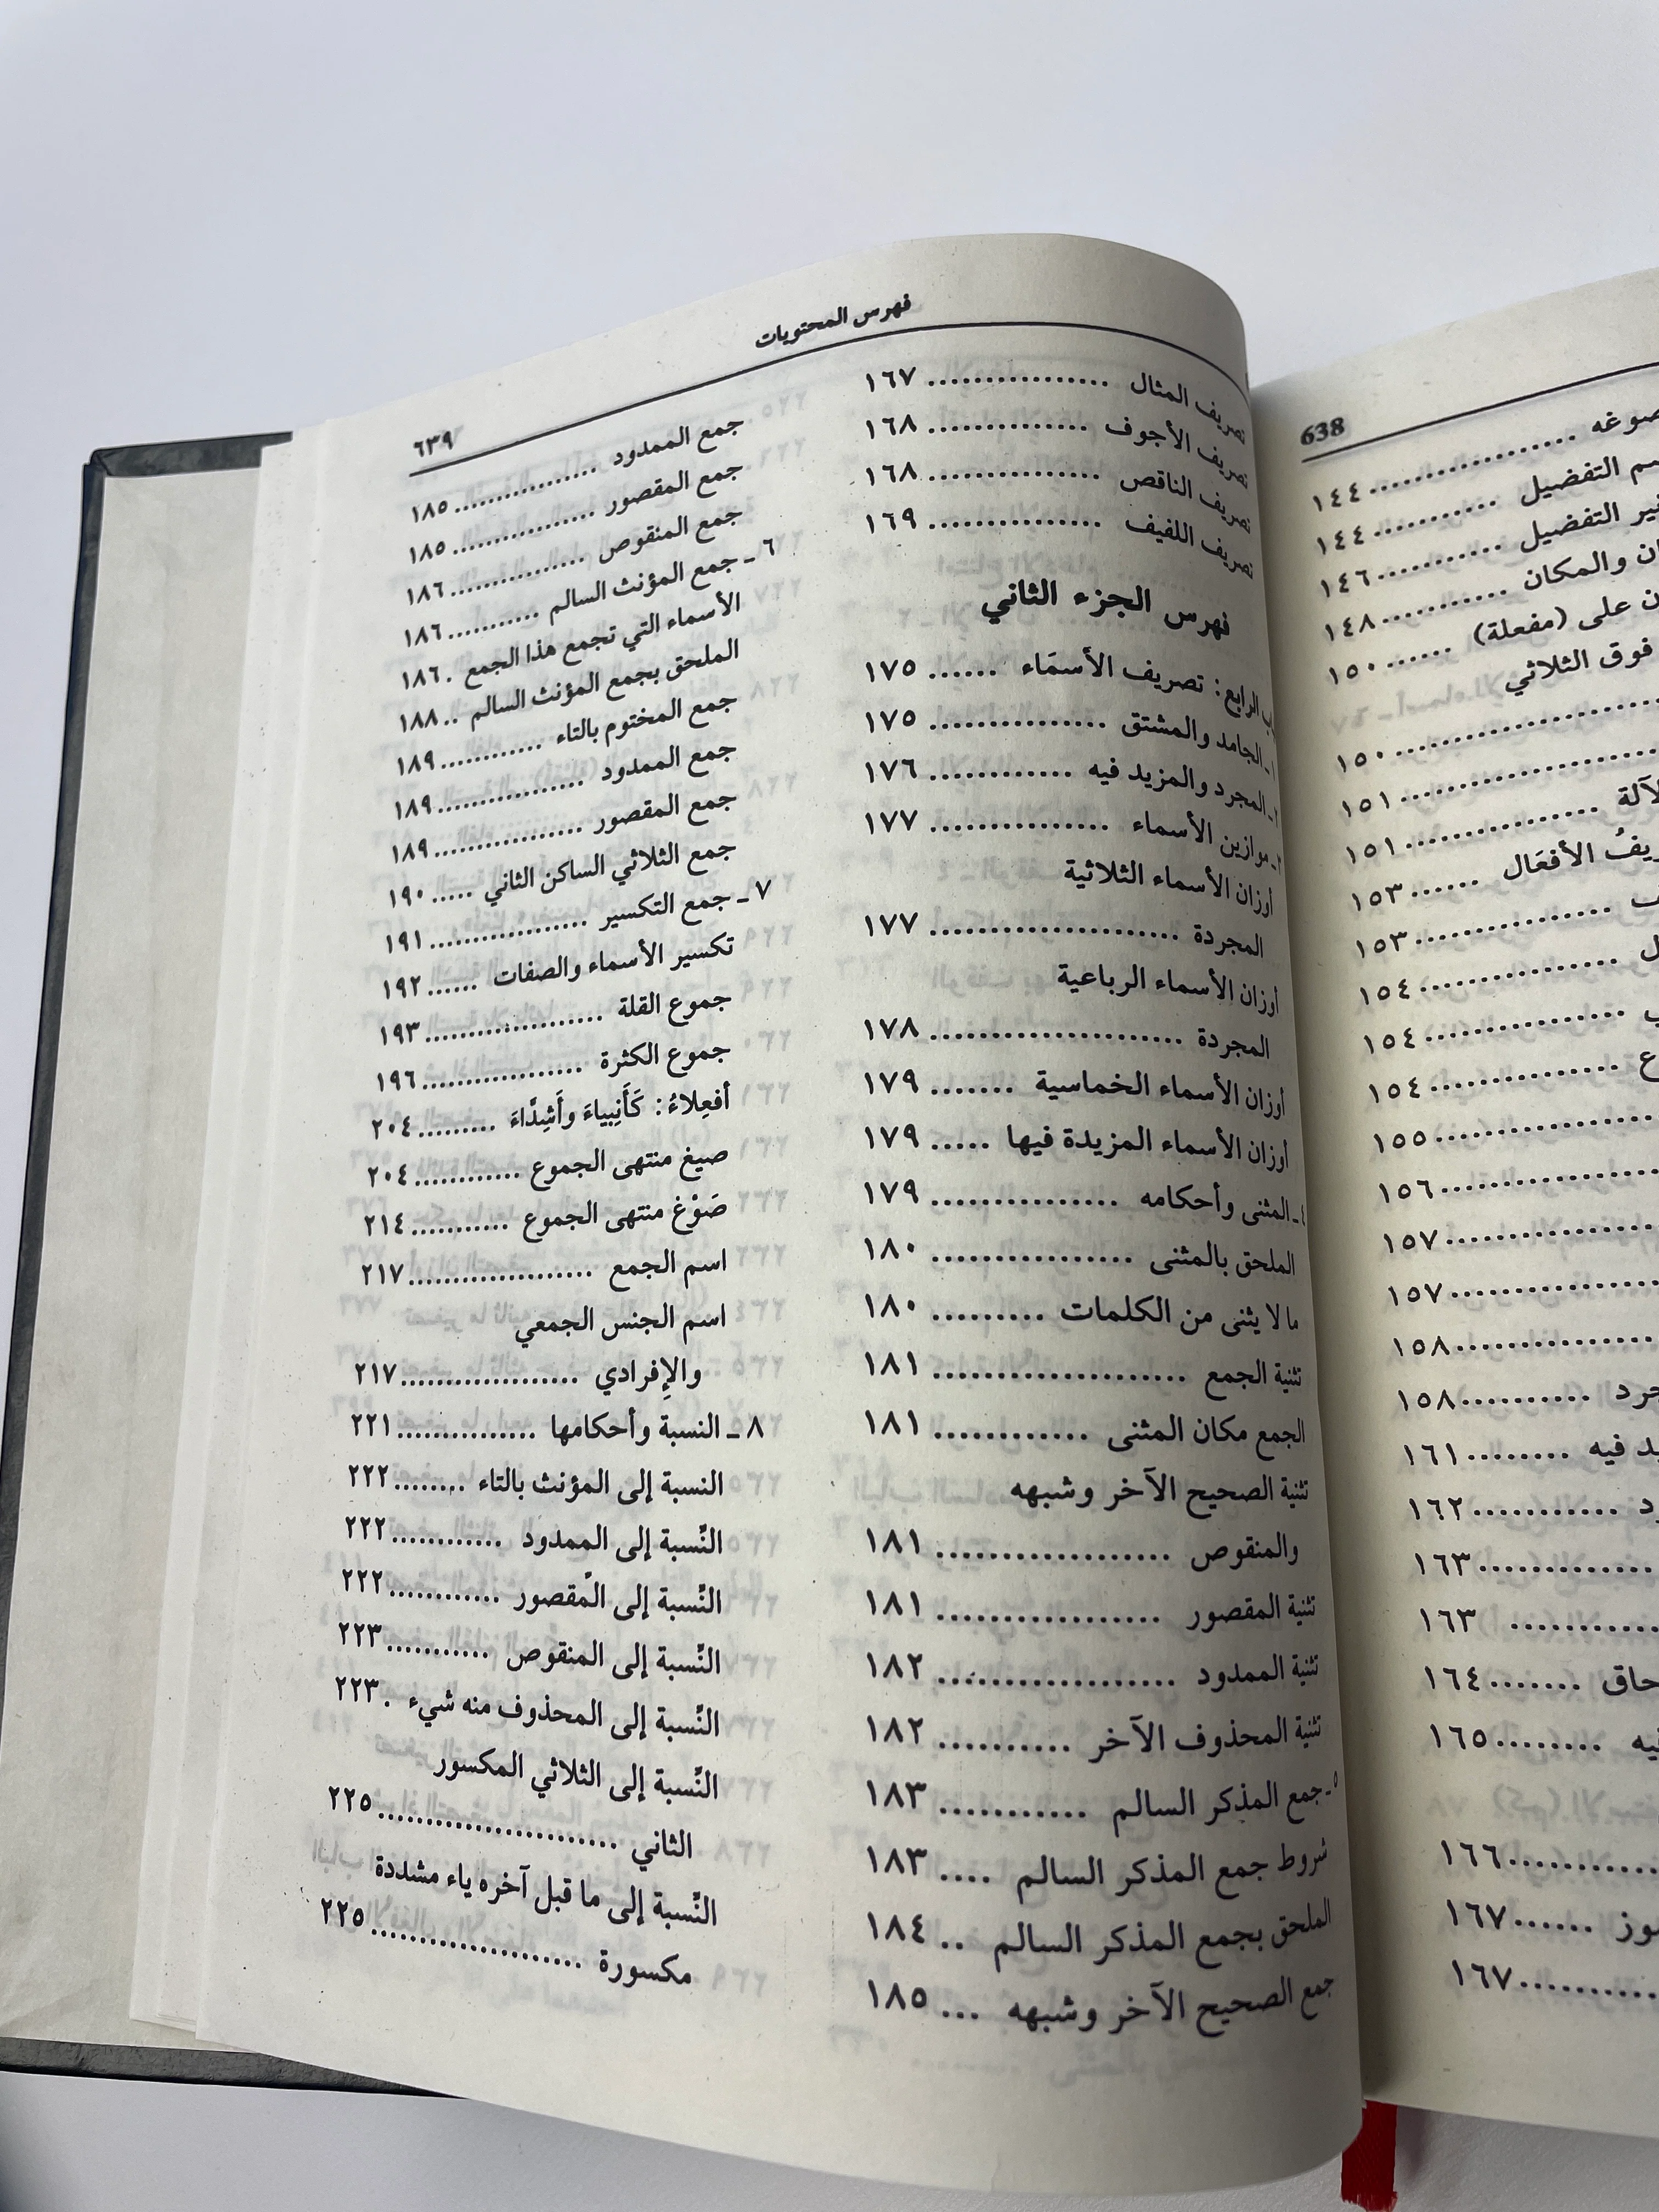 638
صوغه .... ١٤٤
التفضيل .... ١٤٤
التفضيل .... ١٤٦
والمكان .... ١٤٨
على (مفعلة) .... ١٥٠
فوق الثلاثي
.... ١٥٠
.... ١٥١
.... ١٥١
الأفعَال .... ١٥٣
.... ١٥٣
.... ١٥٤
.... ١٥٤
.... ١٥٤
.... ١٥٥
.... ١٥٦
.... ١٥٧
.... ١٥٧
.... ١٥٨
.... ١٥٨
فيه .... ١٦١
.... ١٦٢
.... ١٦٣
.... ١٦٣
.... ١٦٤
.... ١٦٥
.... ١٦٦
.... ١٦٧
.... ١٦٧
فهرس المحتويات
٦٣٩
تصريف المثال .... ١٦٧
تصريف الأجوف .... ١٦٨
تصريف الناقص .... ١٦٨
تصريف اللفيف .... ١٦٩
فهرس الجزء الثاني
الرابع: تصريف الأسمَاء .... ١٧٥
الجامد والمشتق .... ١٧٥
المجرد والمزيد فيه .... ١٧٦
موازين الأسماء .... ١٧٧
أوزان الأسماء الثلاثية
المجردة .... ١٧٧
أوزان الأسماء الرباعية
المجردة .... ١٧٨
أوزان الأسماء الخماسية .... ١٧٩
أوزان الأسماء المزيدة فيها .... ١٧٩
٤ـ المثنى وأحكامه .... ١٧٩
الملحق بالمثنى .... ١٨٠
ما لا يثنى من الكلمات .... ١٨٠
تثنية الجمع .... ١٨١
الجمع مكان المثنى .... ١٨١
تثنية الصحيح الآخر وشبهه
والمنقوص .... ١٨١
تثنية المقصور .... ١٨١
تثنية الممدود .... ١٨٢
تثنية المحذوف الآخر .... ١٨٢
٥ـ جمع المذكر السالم .... ١٨٣
شروط جمع المذكر السالم .... ١٨٣
الملحق بجمع المذكر السالم .. ١٨٤
جمع الصحيح الآخر وشبهه ... ١٨٥
جمع الممدود .... ١٨٥
جمع المقصور .... ١٨٥
جمع المنقوص .... ١٨٦
٦ ـ جمع المؤنث السالم .... ١٨٦
الأسماء التي تجمع هذا الجمع . ١٨٦
الملحق بجمع المؤنث السالم .. ١٨٨
جمع المختوم بالتاء .... ١٨٩
جمع الممدود .... ١٨٩
جمع المقصور .... ١٨٩
جمع الثلاثي الساكن الثاني .... ١٩٠
٧ ـ جمع التكسير .... ١٩١
تكسير الأسماء والصفات .... ١٩٢
جموع القلة .... ١٩٣
جموع الكثرة .... ١٩٦
أفعِلاءُ: كَأَنبِياءَ وأَشِدَّاءَ .... ٢٠٤
صيغ منتهى الجموع .... ٢٠٤
صَوْغ منتهى الجموع .... ٢١٤
اسم الجمع .... ٢١٧
اسم الجنس الجمعي
والإِفرادي .... ٢١٧
٨ ـ النسبة وأحكامها .... ٢٢١
النسبة إلى المؤنث بالتاء .... ٢٢٢
النِّسبة إلى الممدود .... ٢٢٢
النِّسبة إلى المقصور .... ٢٢٢
النِّسبة إلى المنقوص .... ٢٢٣
النِّسبة إلى المحذوف منه شيء . ٢٢٣
النِّسبة إلى الثلاثي المكسور
الثاني .... ٢٢٥
النِّسبة إلى ما قبل آخره ياء مشددة
مكسورة .... ٢٢٥